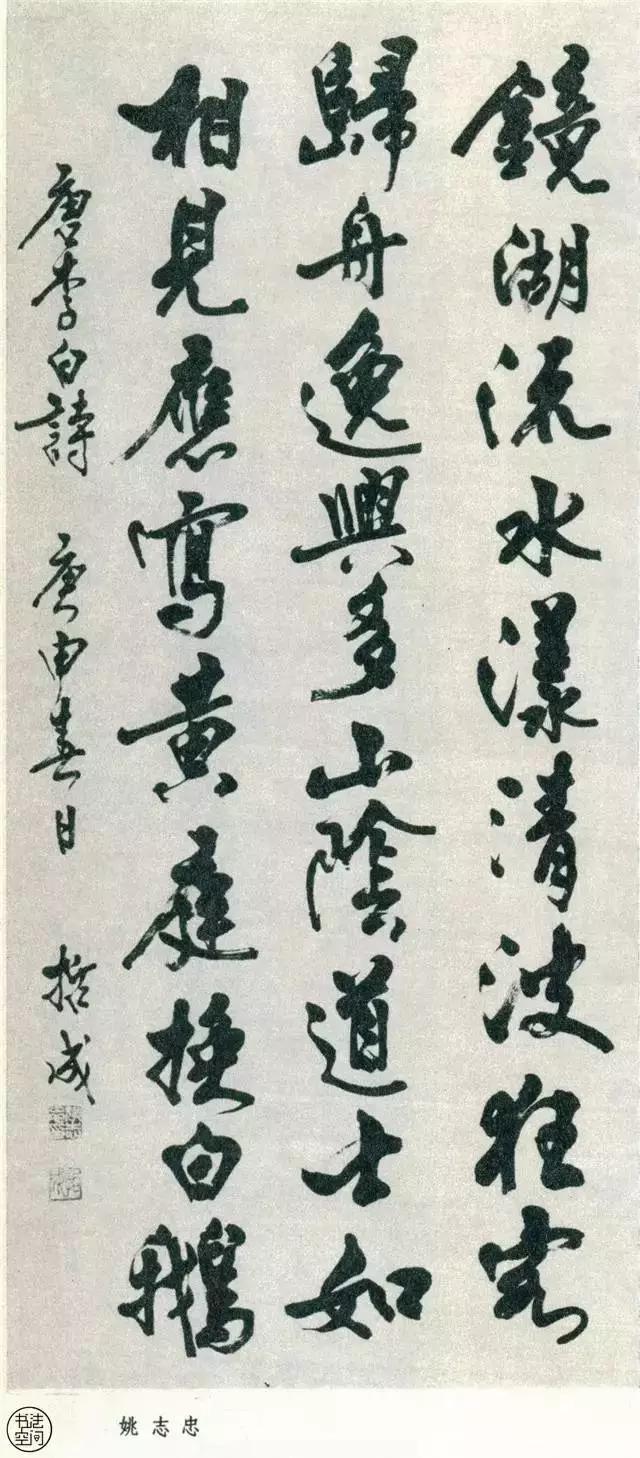 鏡湖流水漾清波狂客
歸舟逸興多山陰道士如
相見應寫黄庭換白鵝
唐李白詩 庚申春日 成
姚志忠
书法
空间